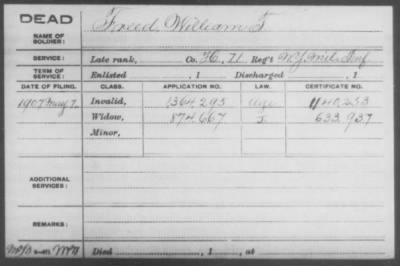 DEAD
NAME OF SOLDIER:
Freed, William F.
SERVICE:
Late rank, Co. H, 71 Reg't N.Y. Mil. Inf.
TERM OF SERVICE:
Enlisted , 1 Discharged , 1
DATE OF FILING. CLASS. APPLICATION NO. LAW. CERTIFICATE NO.
Invalid, 1364295 1140,253
1907 7. Widow, 874667 633,937
Minor,
ADDITIONAL SERVICES:
REMARKS:
Died , 1 , at